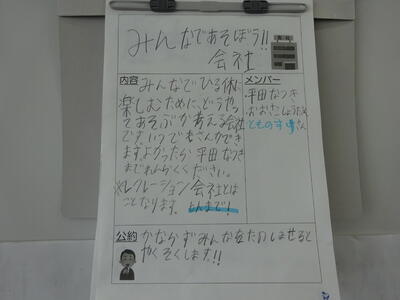 みんなであそぼう!!
会社
内容
みんなでひる休に
楽しむために、どうやっ
てあそぶか考える会社
です。いつでもさんかでき
ます。よかったら平田なつき
までれんらくください。
※レクレーション会社とは
ことなります。
メンバー
平田なつき
さん
公約
かならずみんなをたのしませると
やくそくします!!